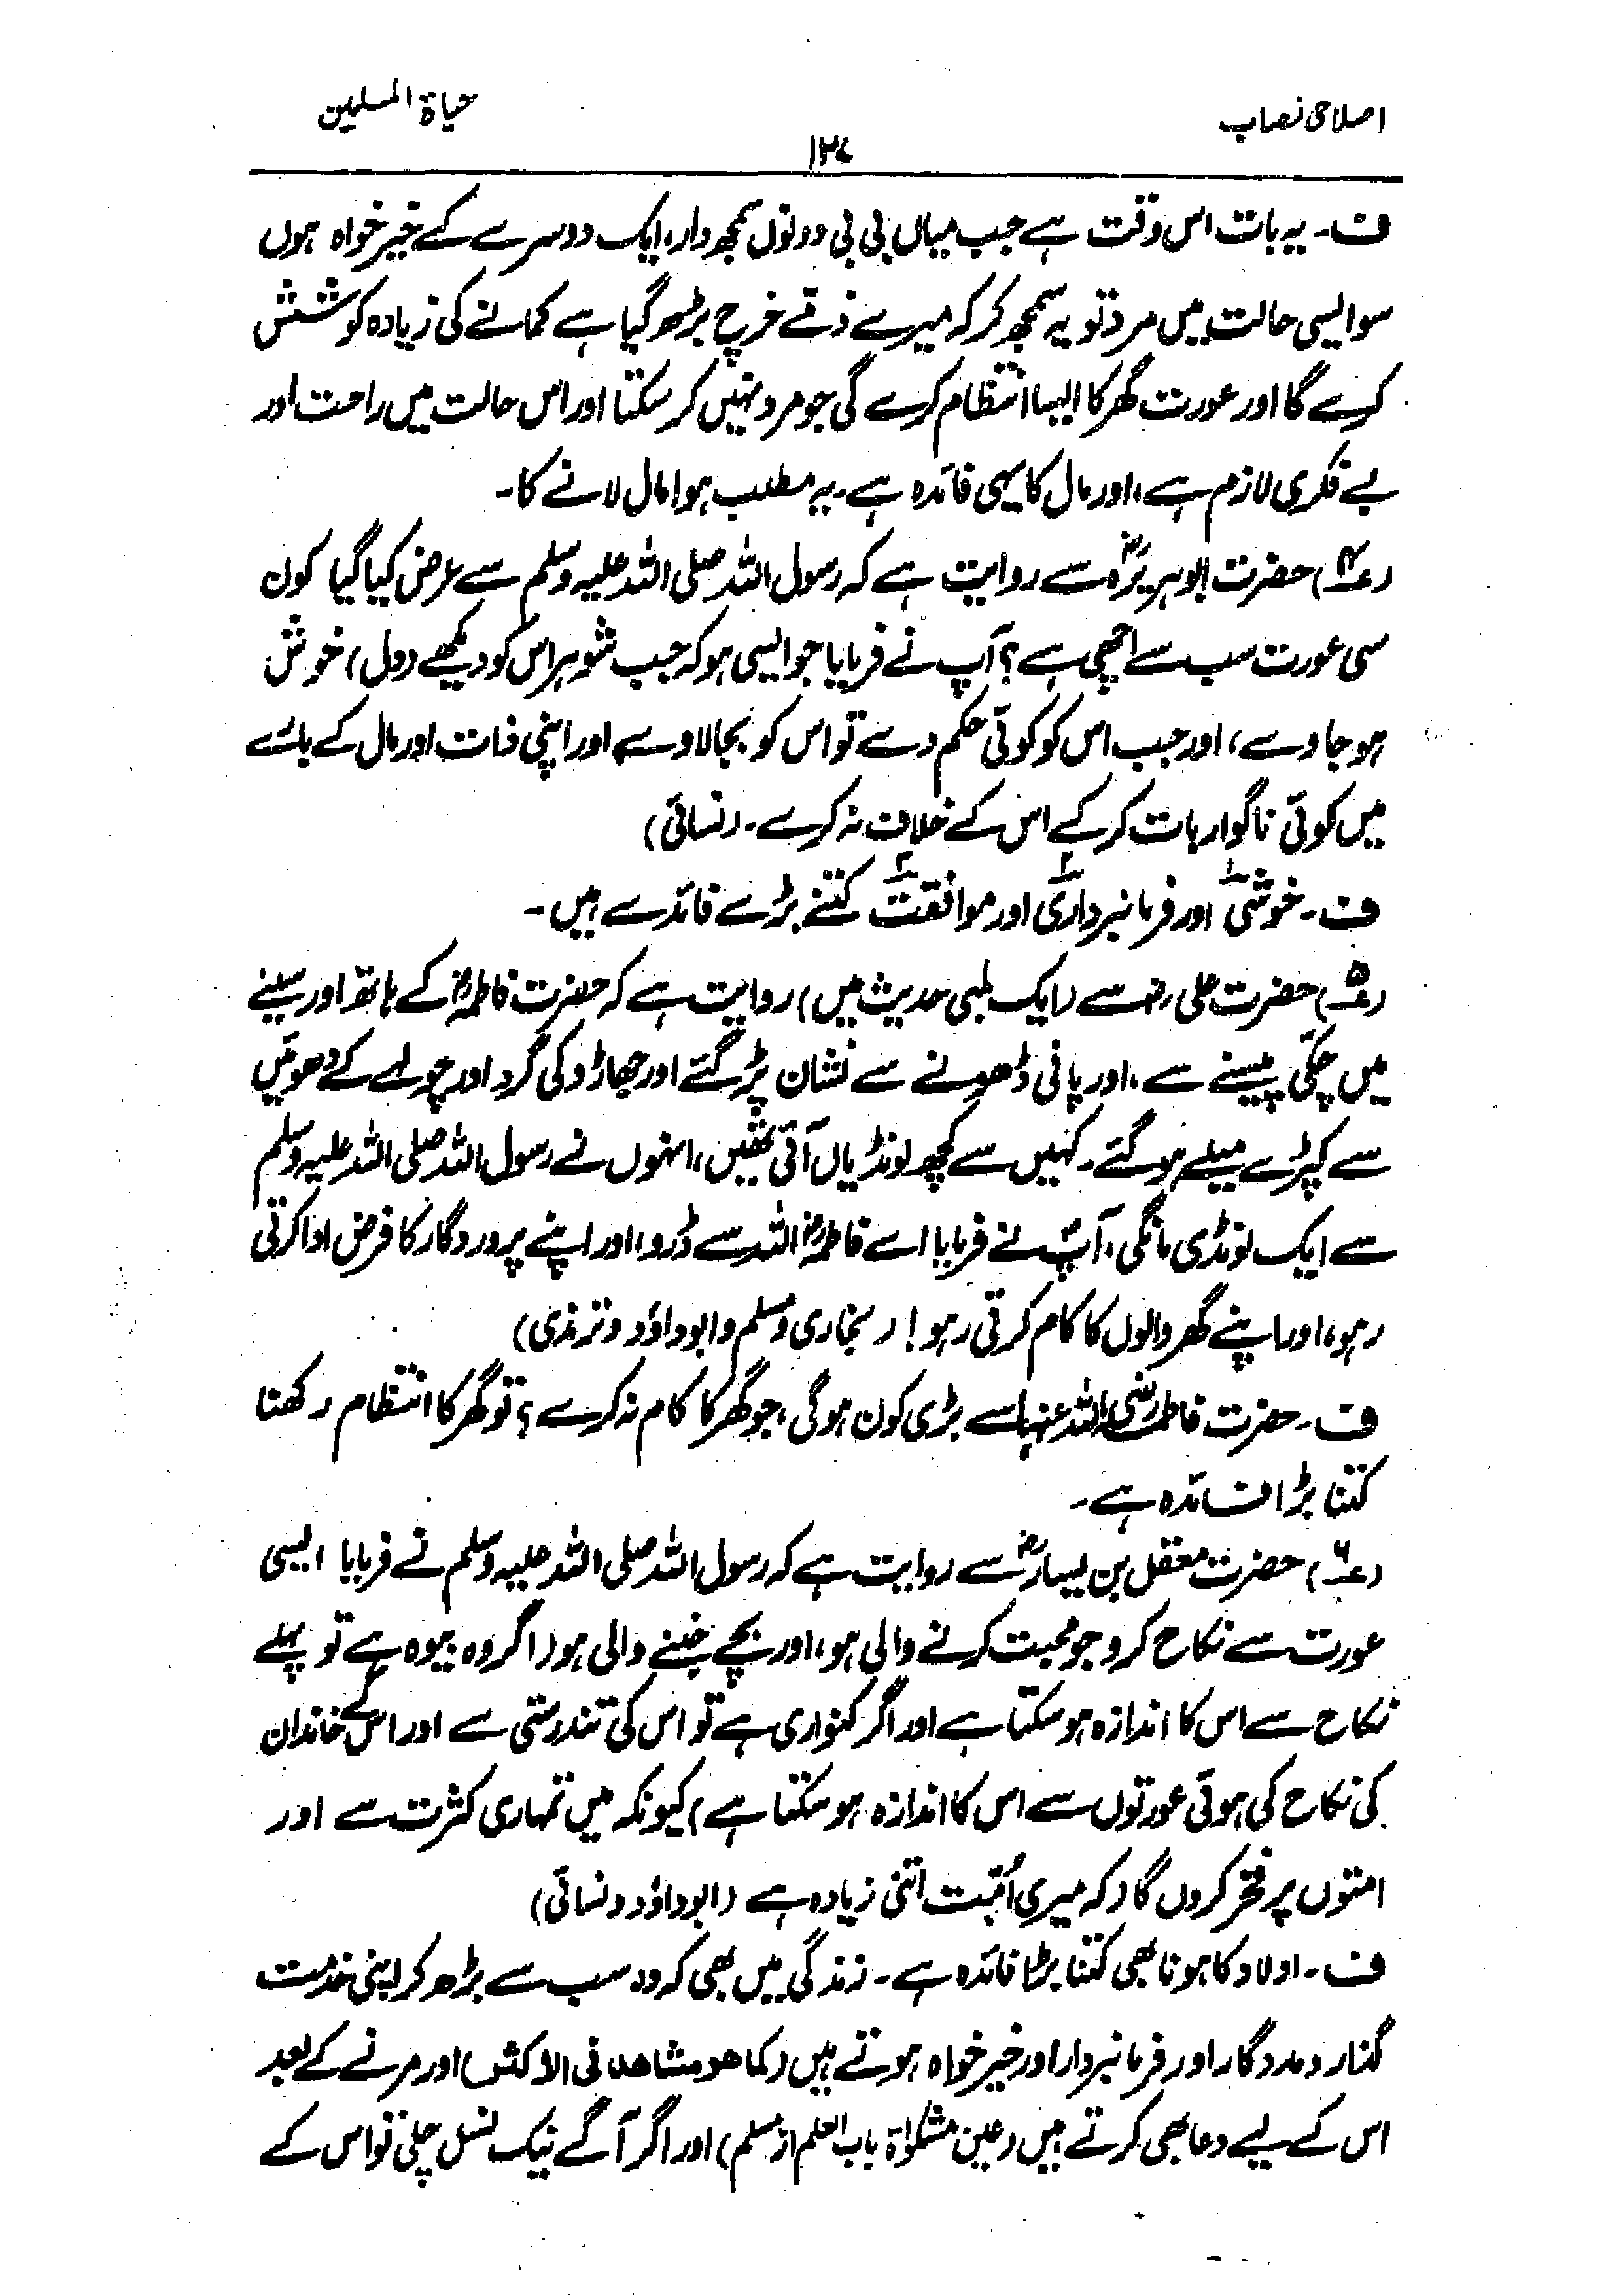 اصلاحی نصاب
حیاۃ المسلمین
۱۳۷
ف۔ یہ بات اس وقت ہے جب میاں بی بی دونوں سمجھ دار، ایک دوسرے کے خیر خواہ ہوں
سو ایسی حالت میں مرد تو یہ سمجھ کر کہ میرے ذمّے خرچ بڑھ گیا ہے کمانے کی زیادہ کوشش
کرے گا اور عورت گھر کا ایسا انتظام کرے گی جو مرد نہیں کر سکتا اور اس حالت میں راحت اور
بے فکری لازم ہے، اور مال کا یہی فائدہ ہے۔ یہ مطلب ہوا مال لانے کا۔
(ع۴) حضرت ابوہریرہؓ سے روایت ہے کہ رسول اللہ صلی اللہ علیہ وسلم سے عرض کیا گیا کون
سی عورت سب سے اچھی ہے؟ آپ نے فرمایا جو ایسی ہو کہ جب شوہر اس کو دیکھے (دل) خوش
ہو جاوے، اور جب اس کو کوئی حکم دے تو اس کو بجا لاوے اور اپنی ذات اور مال کے بارے
میں کوئی ناگوار بات کر کے اس کے خلاف نہ کرے۔ (نسائی)
ف۔ خوشی۱ اور فرمانبرداری۲ اور موافقت۳ کتنے بڑے فائدے ہیں۔
(ع۵) حضرت علی رض سے (ایک لمبی حدیث میں) روایت ہے کہ حضرت فاطمہؓ کے ہاتھ اور سینے
میں چکّی پیسنے سے، اور پانی ڈھونے سے نشان پڑ گئے اور جھاڑو کی گرد اور چولہے کے دھوئیں
سے کپڑے میلے ہو گئے۔ کہیں سے کچھ لونڈیاں آئی تھیں، انہوں نے رسول اللہ صلی اللہ علیہ وسلم
سے ایک لونڈی مانگی، آپؐ نے فرمایا اے فاطمہؓ اللہ سے ڈرو، اور اپنے پروردگار کا فرض ادا کرتی
رہو، اور اپنے گھر والوں کا کام کرتی رہو! (بخاری و مسلم و ابو داؤد و ترمذی)
ف۔ حضرت فاطمہ رضی اللہ عنہا سے بڑی کون ہو گی، جو گھر کا کام نہ کرے؟ تو گھر کا انتظام رکھنا
کتنا بڑا فائدہ ہے۔
(ع۶) حضرت معقل بن یسارؓ سے روایت ہے کہ رسول اللہ صلی اللہ علیہ وسلم نے فرمایا ایسی
عورت سے نکاح کرو جو محبت کرنے والی ہو، اور بچے جننے والی ہو (اگر وہ بیوہ ہے تو پہلے
نکاح سے اس کا اندازہ ہو سکتا ہے اور اگر کنواری ہے تو اس کی تندرستی سے اور اس کے خاندان
کی نکاح کی ہوئی عورتوں سے اس کا اندازہ ہو سکتا ہے) کیونکہ میں تمہاری کثرت سے اور
امتوں پر فخر کروں گا (کہ میری اُمّت اتنی زیادہ ہے (ابوداؤد و نسائی)
ف۔ اولاد کا ہونا بھی کتنا بڑا فائدہ ہے۔ زندگی میں بھی کہ وہ سب سے بڑھ کر اپنی خدمت
گذار و مددگار اور فرمانبردار اور خیر خواہ ہوتے ہیں (کما هو مشاهد فی الاکثر) اور مرنے کے بعد
اس کے لیے دعا بھی کرتے ہیں (عین مشکوٰۃ باب العلم از مسلم) اور اگر آگے نیک نسل چلی تو اس کے